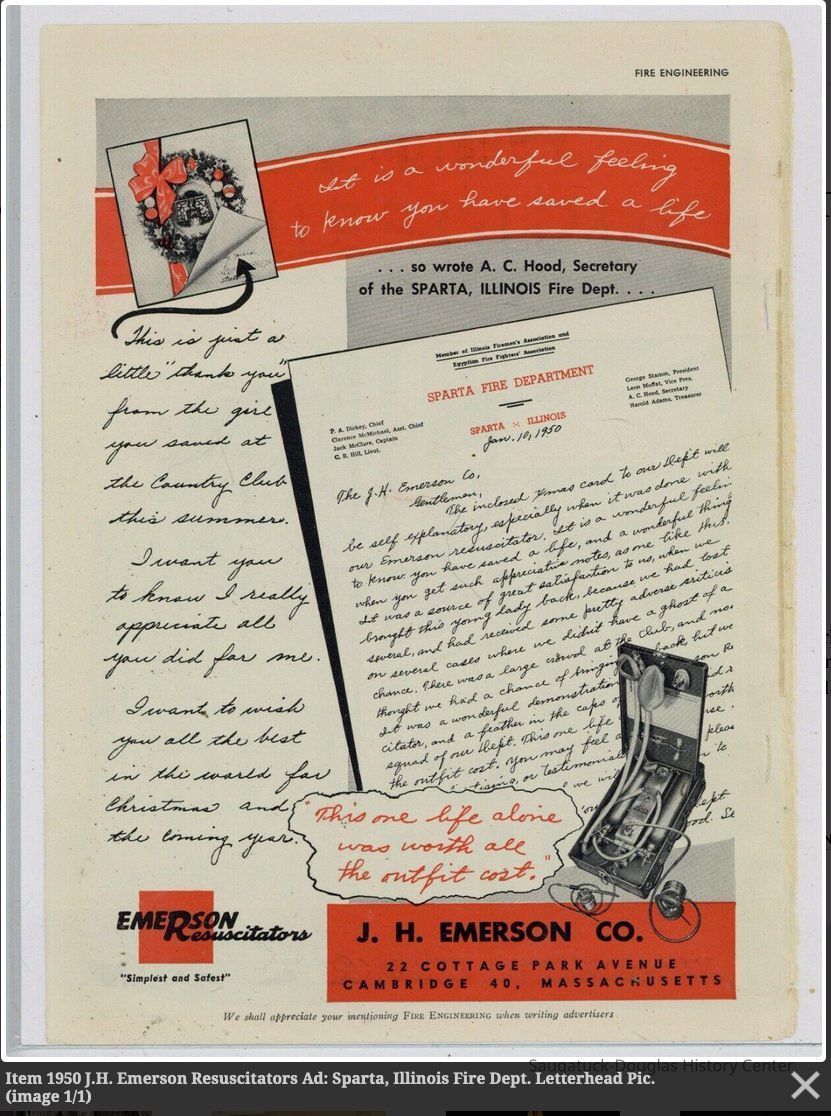 FIRE ENGINEERING
It is a wonderful feeling
to know you have saved a life
. . . so wrote A. C. Hood, Secretary
of the SPARTA, ILLINOIS Fire Dept. . . .
This is just a
little "thank you"
from the girl
you saved at
the Country Club
this summer.
I want you
to know I really
appreciate all
you did for me.
I want to wish
you all the best
in the world for
Christmas and
the coming year.
Member of Illinois Firemen's Association and
Egyptian Fire Fighters' Association
SPARTA FIRE DEPARTMENT
SPARTA ILLINOIS
P. A. Dickey, Chief
Clarence McMichael, Asst. Chief
Jack McClure, Captain
C. E. Hill, Lieut.
George Stamm, President
Leon Moffat, Vice Pres.
A. C. Hood, Secretary
Harold Adams, Treasurer
Jan. 10, 1950
The J.H. Emerson Co,
Gentlemen,
The inclosed Xmas card to our Dept will
be self explanatory, especially when it was done with
our Emerson resuscitator. It is a wonderful feelin
to know you have saved a life, and a wonderful thing
when you get such appreciative notes, as one like this.
It was a source of great satisfaction to us, when we
brought this young lady back, because we had lost
several, and had received some pretty adverse criticis
on several cases where we didn't have a ghost of a
chance. There was a large crowd at the Club, and no
thought we had a chance of bringing back, but we
It was a wonderful demonstration
citator, and a feather in the caps o
squad of our Dept. This one life
the outfit cost. You may feel
tising, or testimonial
"This one life alone
was worth all
the outfit cost."
EMERSON
Resuscitators
"Simplest and Safest"
J. H. EMERSON CO.
22 COTTAGE PARK AVENUE
CAMBRIDGE 40, MASSACHUSETTS
We shall appreciate your mentioning FIRE ENGINEERING when writing advertisers.
Saugatuck-Douglas History Center
Item 1950 J.H. Emerson Resuscitators Ad: Sparta, Illinois Fire Dept. Letterhead Pic.
(image 1/1)